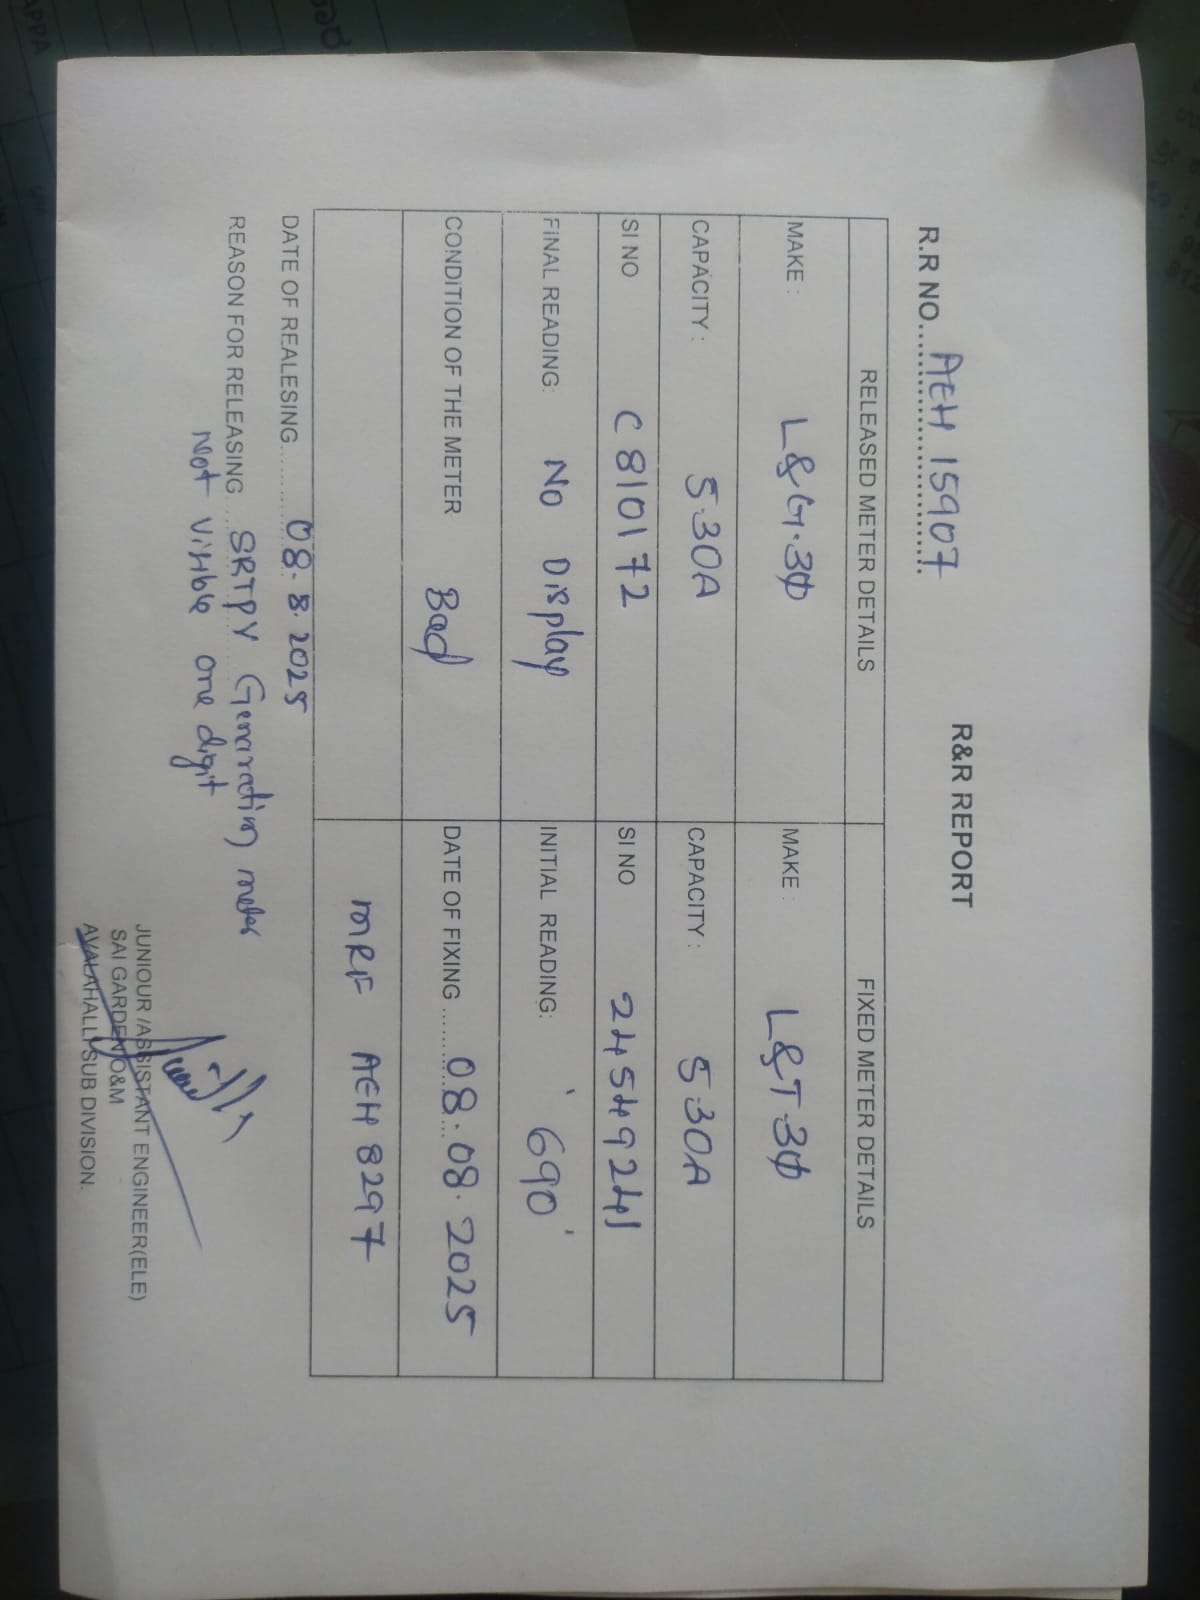 R&R REPORT
R.R NO. AEH 15907
RELEASED METER DETAILS FIXED METER DETAILS
MAKE : L&G.3Ø MAKE : L&T 3Ø
CAPACITY : 5.30A CAPACITY : 5.30A
SI NO C810172 SI NO 24549241
FINAL READING: No Display INITIAL READING: '690'
CONDITION OF THE METER Bad DATE OF FIXING 08.08.2025
MRF AEH 8297
DATE OF REALESING 08.8.2025
REASON FOR RELEASING SRTPV Generating meter
Not visible one digit
JUNIOUR /ASSISTANT ENGINEER(ELE)
SAI GARDEN O&M
AVALAHALLI SUB DIVISION.